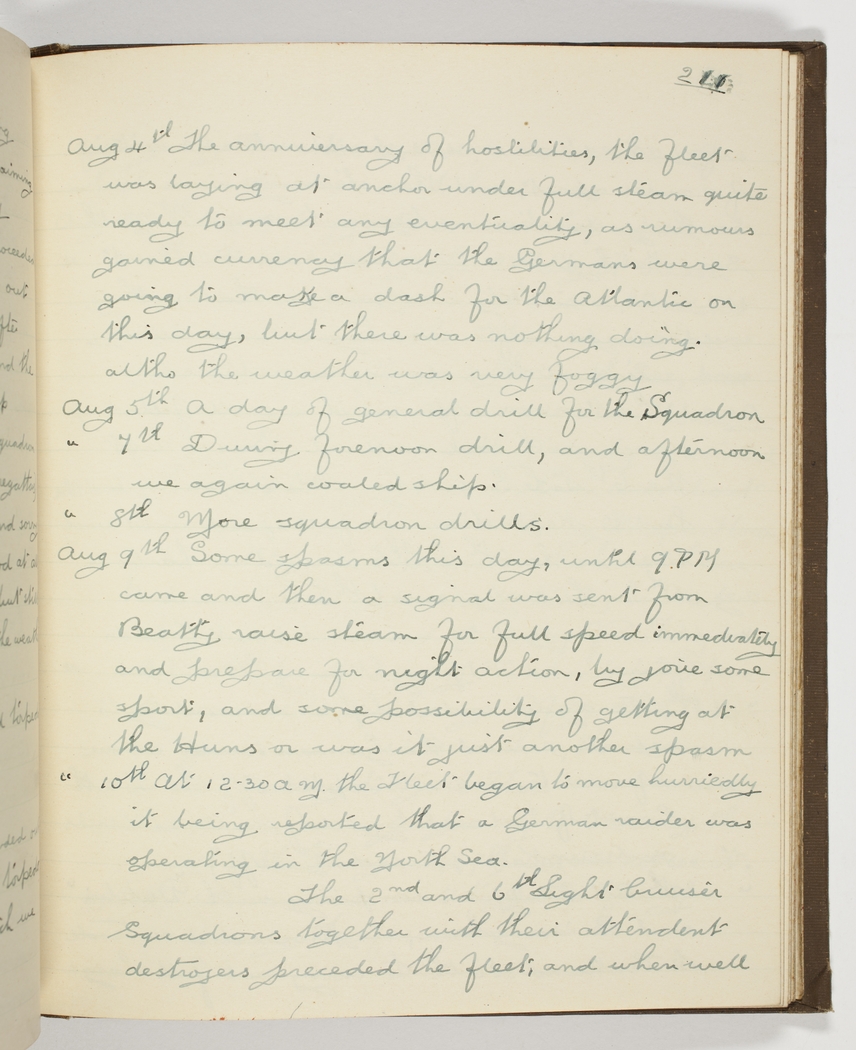 211
Aug 4th The anniversary of hostilities, the fleet
was laying at anchor under full steam quite
ready to meet any eventuality, as rumours
gained currency that the Germans were
going to make a dash for the Atlantic on
this day, but there was nothing doing.
altho the weather was very foggy
Aug 5th A day of general drill for the Squadron
" 7th During forenoon drill, and afternoon
we again coaled ship.
" 8th More squadron drills.
Aug 9th Some spasms this day, until 9.PM
came and then a signal was sent from
Beatty raise steam for full speed immediately
and prepare for night action, by jove some
sport, and some possibility of getting at
the Huns or was it just another spasm
" 10th At 12-30 a.m. the Fleet began to move hurriedly
it being reported that a German raider was
operating in the North Sea.
The 2nd and 6th Light Cruiser
Squadrons together with their attendent
destroyers preceded the fleet, and when well